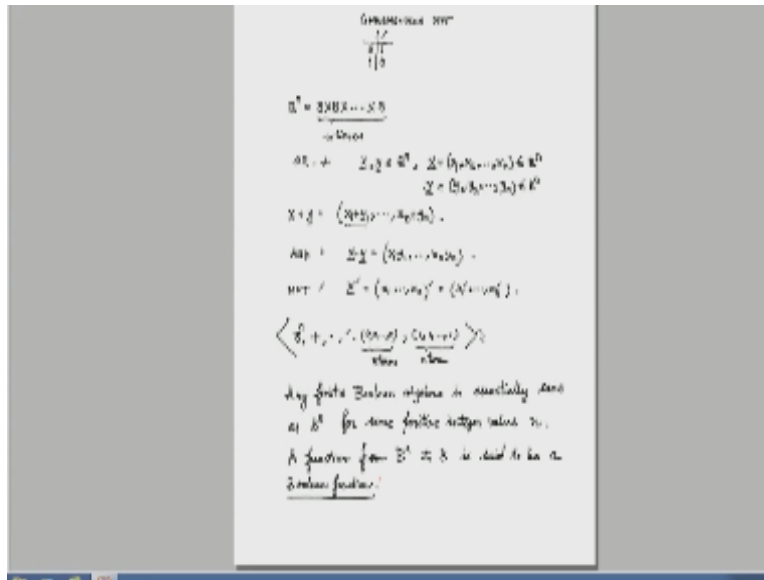 COMPLEMENTATION NOT
′
0 1
1 0
Bⁿ = B×B×...×B
n times
OR, + x, y ∈ Bⁿ, x = (x₁, x₂, ..., xₙ) ∈ Bⁿ
y = (y₁, y₂, ..., yₙ) ∈ Bⁿ
x + y = (x₁+y₁, ..., xₙ+yₙ).
AND · x·y = (x₁y₁, ..., xₙyₙ).
NOT ′ x′ = (x₁, ..., xₙ)′ = (x₁′, ..., xₙ′).
⟨Bⁿ, +, ·, ′, (0,0,...,0), (1,1,...,1)⟩
n times n times
Any finite Boolean algebra is essentially same
as Bⁿ for some positive integer value n.
A function from Bⁿ to B is said to be a
Boolean function.